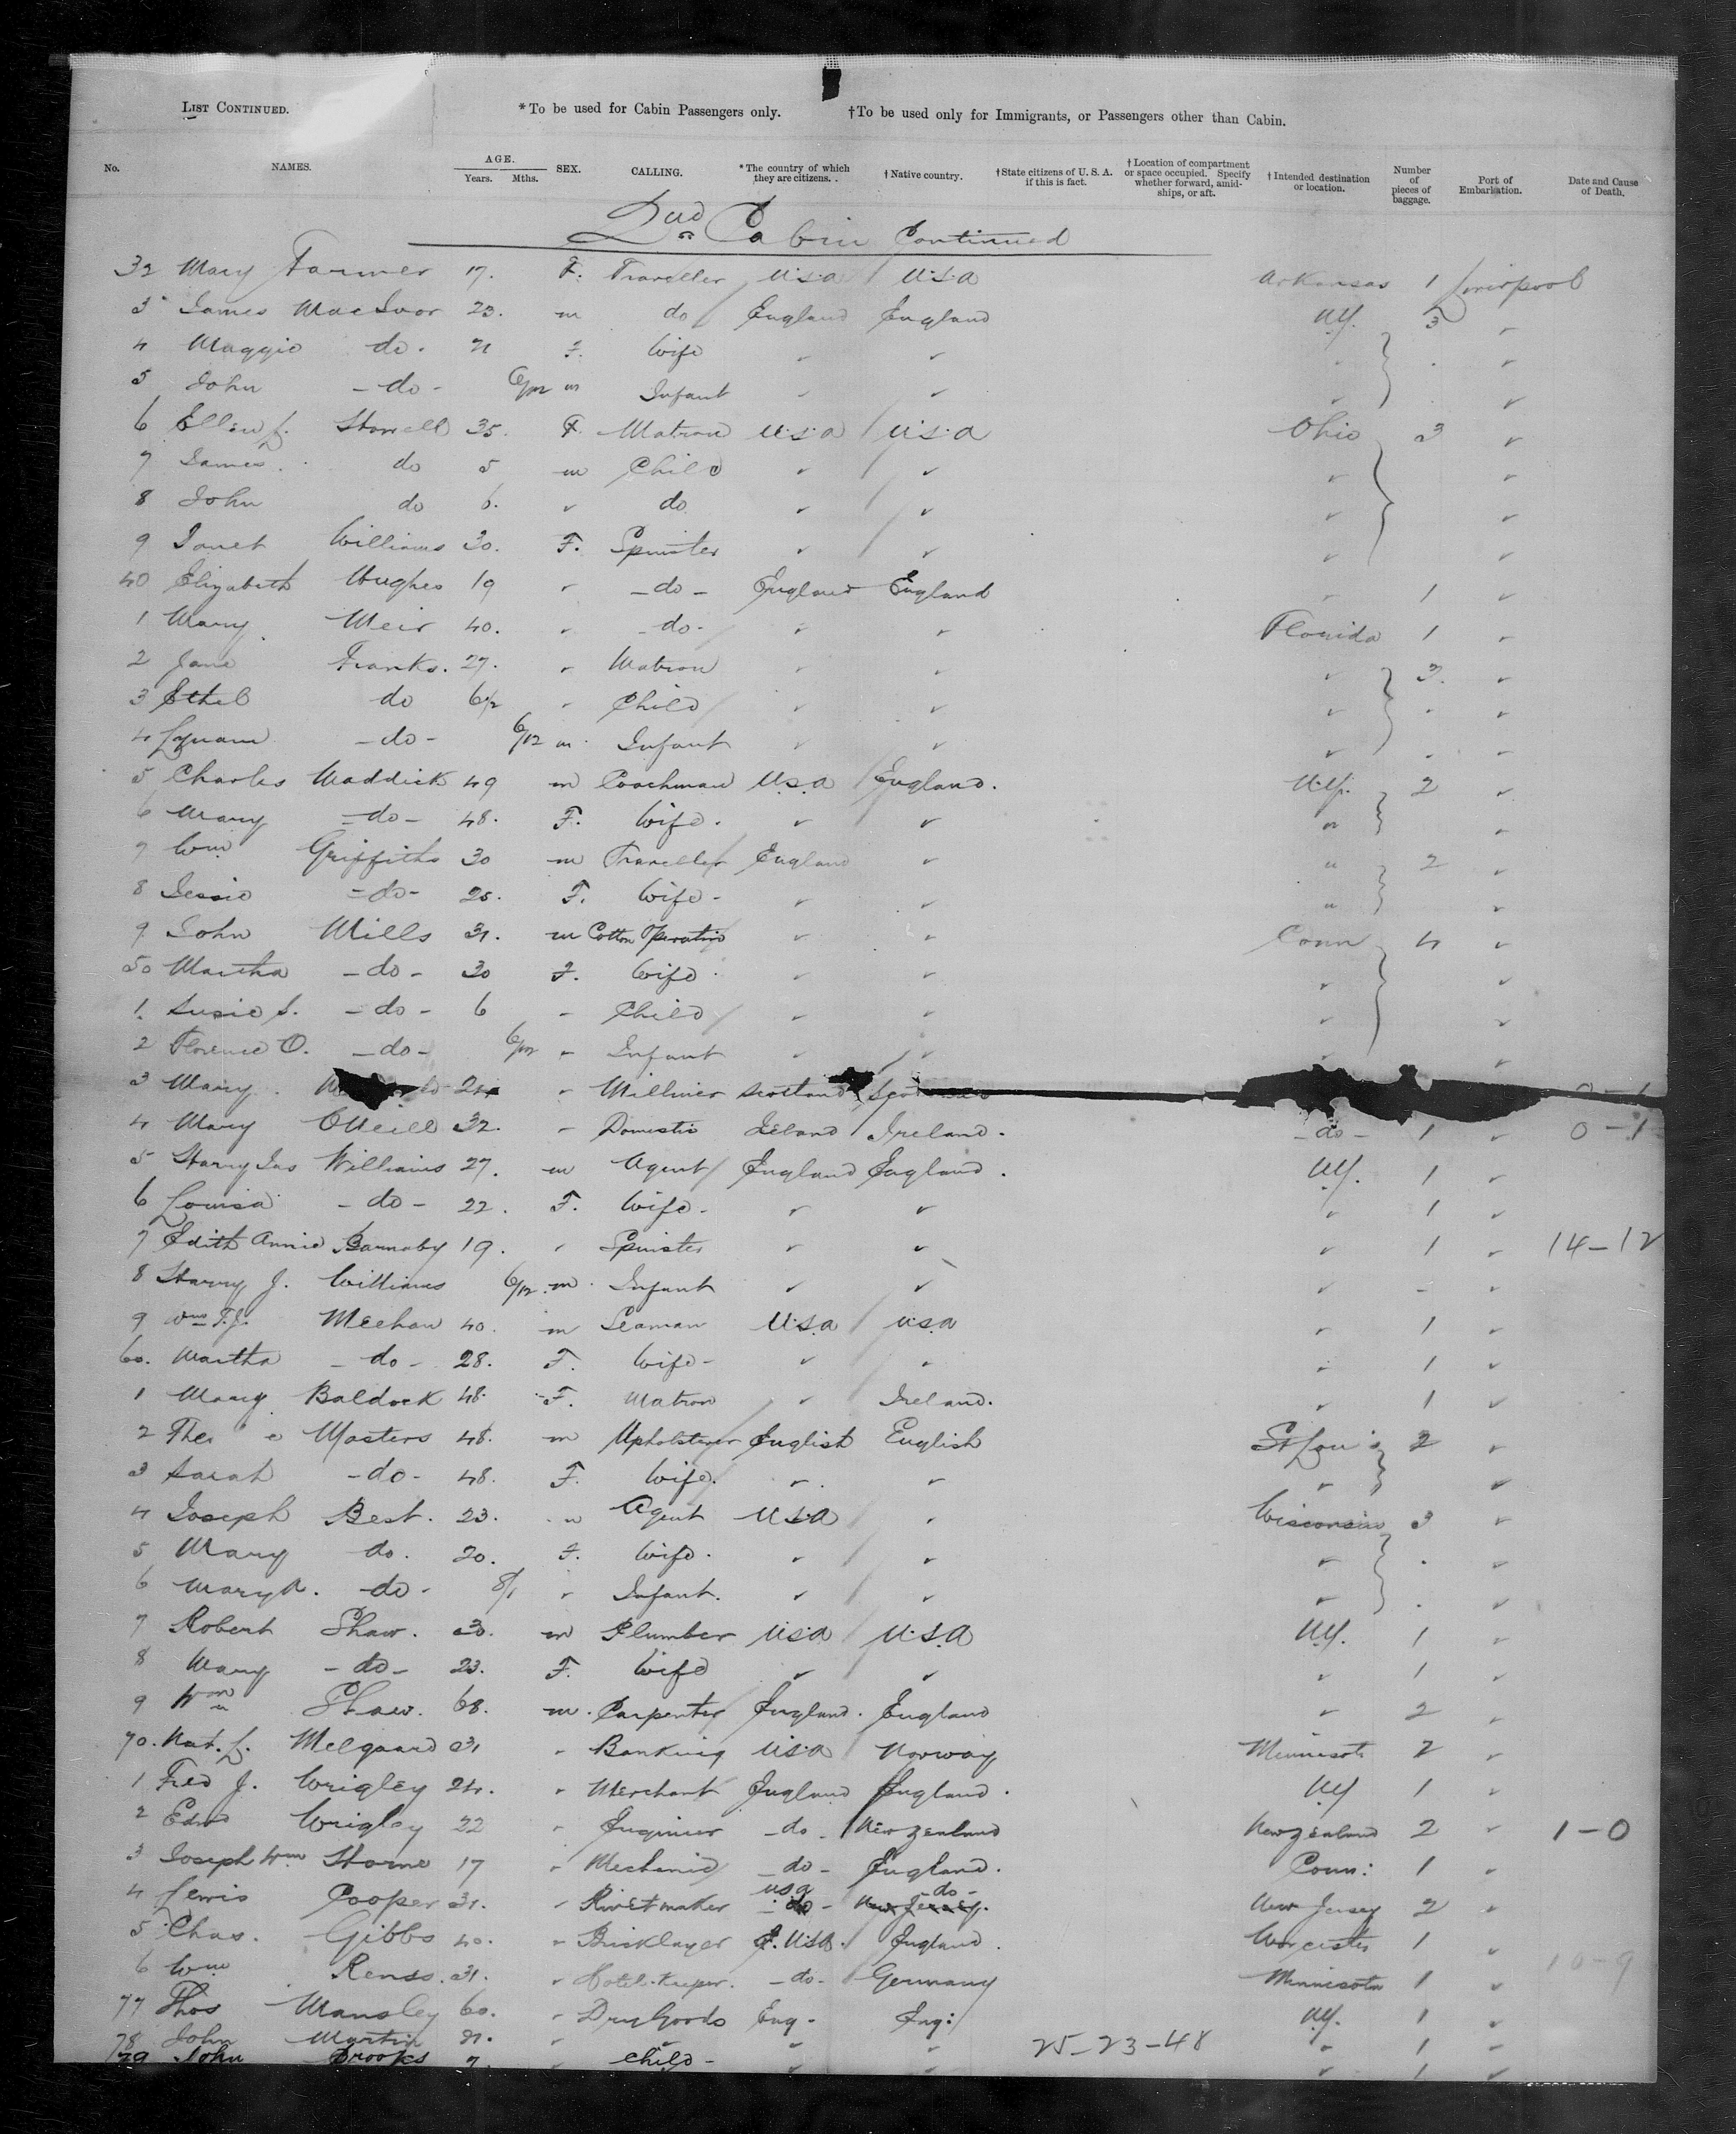 LIST CONTINUED. *To be used for Cabin Passengers only. †To be used only for Immigrants, or Passengers other than Cabin.
No. NAMES. AGE. Years. Mths. SEX. CALLING. *The country of which they are citizens. †Native country. †State citizens of U. S. A. if this is fact. †Location of compartment or space occupied. Specify whether forward, amidships, or aft. †Intended destination or location. Number of pieces of baggage. Port of Embarkation. Date and Cause of Death.
2nd Cabin Continued
32 Mary Farmer 17. F. Traveller U.S.A U.S.A Arkansas 1 Liverpool
3 James MacIvor 23. m do England England N.Y. 3 "
4 Maggie do. 21 F. Wife " " " . "
5 John - do - 6/12 m Infant " " " "
6 Ellen L. Storrell 35. F. Matron U.S.A U.S.A Ohio 3 "
7 James do 5 m Child " " " "
8 John do 6. " do " " " "
9 Janet Williams 30. F. Spinster " " " "
40 Elizabeth Hughes 19 " - do - England England " 1 "
1 Mary Weir 40. " - do - " " Florida 1 "
2 Jane Franks. 27. " Matron " " " 3. "
3 Ethel do " Child " " " . "
4 - do - 6/12 m. Infant " " " . "
5 Charles Maddick 49 m Coachman U.S.A England. N.Y. 2 "
6 Mary - do - 48. F. Wife. " " " "
7 Wm Griffiths 30 m Traveller England " " 2 "
8 Jessie - do - 25. F. Wife - " " " "
9 John Mills 31. m Cotton Operative " " Conn 4 "
50 Martha - do - 30 F. Wife " " " "
1. Susie S. - do - 6 " Child " " " "
2 Florence O. - do - 6/12 " Infant " " " "
3 Mary 24 " Milliner Scotland
4 Mary O'Neill 32. " Domestic Ireland Ireland. - do - 1 " 0-1
5 Harry Jas Williams 27. m Agent England England. N.Y. 1 "
6 Louisa - do - 22. F. Wife. " " " 1 "
7 Edith Annie Barnaby 19. " Spinster " " " 1 " 14-12
8 Harry J. Williams 6/12 m. Infant " " " - "
9 Wm T.J. Meehan 40. m Seaman U.S.A U.S.A " 1 "
60. Martha - do - 28. F. Wife - " " " 1 "
1 Mary Baldock 48. F. Matron " Ireland. " 1 "
2 Masters 48. m Upholsterer English English St Louis 2 "
3 Sarah - do - 48. F. Wife. " " " "
4 Joseph Best. 23. m Agent U.S.A " Wisconsin 3 "
5 Mary do. 20. F. Wife. " " " . "
6 Mary A. - do - " Infant. " " " . "
7 Robert Shaw. 30. m Plumber U.S.A U.S.A N.Y. 1 "
8 Mary - do - 23. F. Wife " " " 1 "
9 Wm Shaw. 68. m. Carpenter England. England " 2 "
70. Nat. L. Melgaard 31 " Banking U.S.A Norway Minnesota 2 "
1 Fred J. Wrigley 24. " Merchant England England. N.Y 1 "
2 Edwd Wrigley 22 " Engineer - do - New Zealand New Zealand 2 " 1-0
3 Joseph Wm Horne 17 " Mechanic - do - England. Conn: 1 "
4 Lewis Cooper 31. " Rivet maker USA do - - do - New Jersey. New Jersey 2 "
5 Chas. Gibbs 40. " Bricklayer U.S.A. England. Worcester 1 "
6 Wm 31. " Hotel-Keeper. - do - Germany Minnesota 1 " 10-9
77 Thos Mansley 60. " Dry Goods Eng - Eng: N.Y. 1 "
78 John Martin 21. " " " " " 1 "
25-23-48
79 John Brooks 7. " Child - " " " 1 "